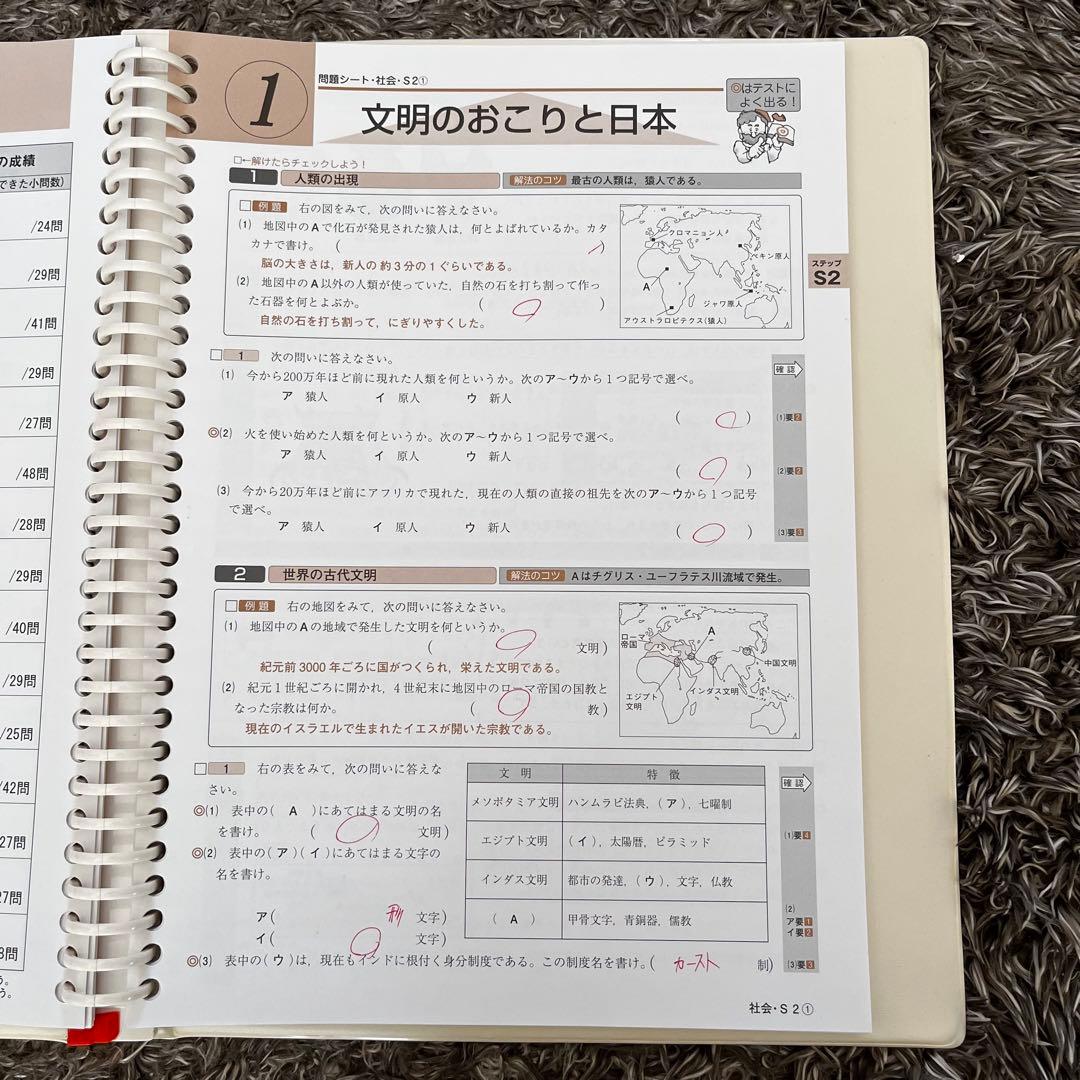 の成績
できた小問数)
/24問
/29問
/41問
/29問
/27問
/48問
/28問
/29問
/40問
/29問
/25問
/42問
27問
7問
8問
1
問題シート・社会・S2①
文明のおこりと日本
◎はテストに
よく出る!
□←解けたらチェックしよう!
1 人類の出現 解法のコツ 最古の人類は,猿人である。
□例題 右の図をみて,次の問いに答えなさい。
(1) 地図中のAで化石が発見された猿人は,何とよばれているか。カタ
カナで書け。( )
脳の大きさは,新人の約3分の1ぐらいである。
(2) 地図中のA以外の人類が使っていた,自然の石を打ち割って作っ
た石器を何とよぶか。 ( )
自然の石を打ち割って,にぎりやすくした。
クロマニョン人
ペキン原人
A
ジャワ原人
アウストラロピテクス(猿人)
ステップ
S2
□1 次の問いに答えなさい。
(1) 今から200万年ほど前に現れた人類を何というか。次のア〜ウから1つ記号で選べ。
ア 猿人 イ 原人 ウ 新人
( )
◎(2) 火を使い始めた人類を何というか。次のア〜ウから1つ記号で選べ。
ア 猿人 イ 原人 ウ 新人
( )
(3) 今から20万年ほど前にアフリカで現れた,現在の人類の直接の祖先を次のア〜ウから1つ記号
で選べ。
ア 猿人 イ 原人 ウ 新人
( )
確認
(1)要2
(2)要2
(3)要3
2 世界の古代文明 解法のコツ Aはチグリス・ユーフラテス川流域で発生。
□例題 右の地図をみて,次の問いに答えなさい。
(1) 地図中のAの地域で発生した文明を何というか。
( 文明)
紀元前3000年ごろに国がつくられ,栄えた文明である。
(2) 紀元1世紀ごろに開かれ,4世紀末に地図中のローマ帝国の国教と
なった宗教は何か。 ( 教)
現在のイスラエルで生まれたイエスが開いた宗教である。
ローマ
帝国
A
中国文明
インダス文明
エジプト
文明
□1 右の表をみて,次の問いに答えな
さい。
◎(1) 表中の( A )にあてはまる文明の名
を書け。 ( 文明)
◎(2) 表中の(ア)(イ)にあてはまる文字の
名を書け。
ア( 形 文字)
イ( 文字)
◎(3) 表中の(ウ)は,現在もインドに根付く身分制度である。この制度名を書け。( カースト 制)
文明 特徴
メソポタミア文明 ハンムラビ法典,(ア),七曜制
エジプト文明 (イ),太陽暦,ピラミッド
インダス文明 都市の発達,(ウ),文字,仏教
( A ) 甲骨文字,青銅器,儒教
確認
(1)要4
(2)
ア要1
イ要2
(3)要3
社会・S2①